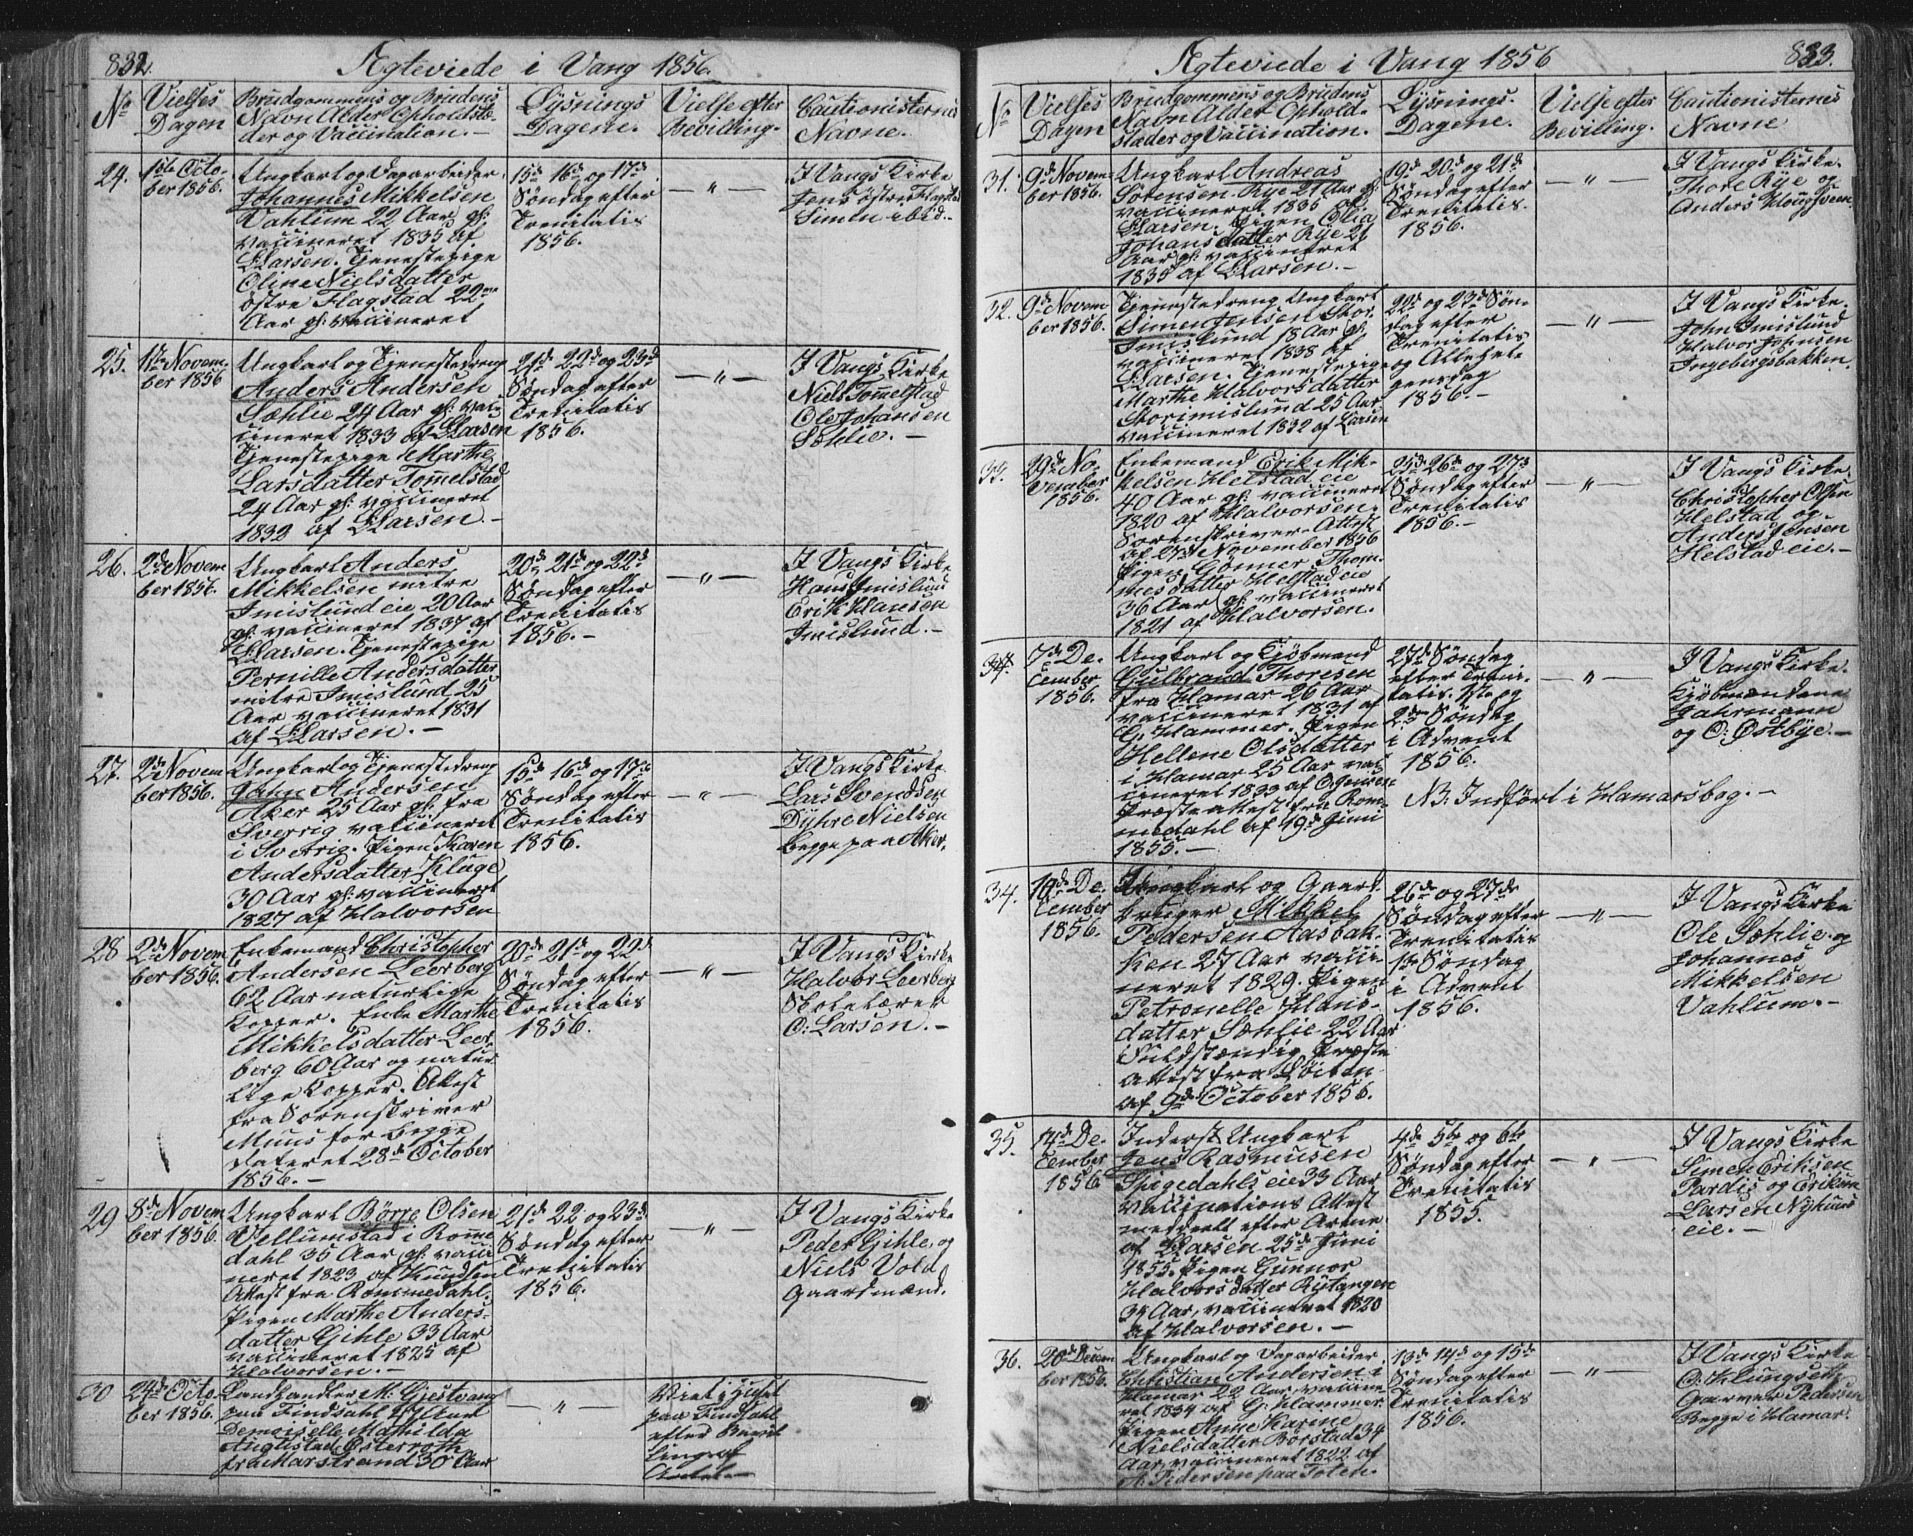 832.
Ægteviede i Vang 1856.
No
Vielses
Dagen
Brudgommens og Brudens
Navn Alder Opholdste-
der og Vaccination.-
Lysnings
Dagene.
Vielse efter
Bevilling.
Cautionisternes
Navne.
24.
Octo-
ber 1856.
Ungkarl og
Johannes Mikkelsen
Vahlum 22 Aar gl:
vaccineret 1835 af
Larsen. Tjenestepige
Oline Nielsdatter
østre Flagstad 22
Aar gl: vaccineret
15d 16d og 17d
Søndag efter
Trenitatis
1856.
- " -
I Vangs Kirke
Jens østre Flagstad
Simen ibid.-
25.
1ste Novem-
ber 1856
Ungkarl og Tjenestedreng
Anders Andersen
Sæhlie 24 Aar gl: vac-
cineret 1833 af Larsen
Tjenestepige Marthe
Larsdatter Tom̄elstad
24 Aar gl: vaccineret
1832 af Larsen.-
21d 22d og 23d
Søndag efter
Trenitatis
1856.
- " -
I Vangs Kirke
Niels Tom̄elstad
Ole Johansen
Sæhlie.-
26.
2d Novem
ber 1856.
Ungkarl Anders
Mikkelsen mitre
Imislund eie 20 Aar
gl: vaccineret 1837 af
Larsen. Tjenestepige
Pernille Andersdatter
mitre Imislund 25
Aar vaccineret 1831
af Larsen.-
20d 21d og 22d
Søndag efter
Trenitatis
1856.-
- " -
I Vangs Kirke
Hans Imislund
Erik Hansen
Imislund.-
27.
2d Novem
ber 1856.
Ungkarl og Tjenestedreng
Jahn Andersen
Aker 25 Aar gl: fra
Sverrig vaccineret
i Sverrig. Pigen Karen
Andersdatter Kluge
30 Aar gl: vaccineret
1827 af Halvorsen
15d 16d og 17d
Søndag efter
Trenitatis
1856.
- " -
I Vangs Kirke
Lars Svendsen
Dyhre Nielsen
begge paa Aker.
28
2d Novem
ber 1856.
Enkemand Christopher
Andersen Leerberg
62 Aar naturlige
Kopper. Enke Marthe
Mikkelsdatter Leer-
berg 60 Aar og natur-
lige Kopper. Attest
fra Sorenskriver
Muus for begge
dateret 28d October
1856.-
20d 21d og 22d
Søndag efter
Trenitatis
1856.
- " -
I Vangs Kirke
Halvor Leerberg
Skolelærer
O: Larsen.-
29
8d Novem
ber 1856.
Ungkarl Børre Olsen
Vellumstad i Rom̄e
dahl 35 Aar gl: vacci
neret 1823 af Knudsen
Attest fra Rommedahl.
Pigen Marthe Anders-
datter Gihle 33 Aar
vaccineret 1825 af
Halvorsen.-
21d 22 og 23d
Søndag efter
Trenitatis
1856.
- " -
I Vangs Kirke
Peder Gihle, og
Niels Vold
Gaardmænd.
30
24d Octo-
ber 1856.
Landhandler M: Gjestvang
paa Findsahl 27 Aar
Demoiselle Mathilda
Augustad Østerroth
fra Marstrand 30 Aar
- " -
Viet i Huset
paa Findsahl
efter Bevil
ling af
833.
Ægteviede i Vang 1856
No
Vielses
Dagen
Brudgommens og Brudens
Navn Alder Ophold-
steder og Vaccination.
Lysnings-
Dagene.
Vielse efter
Bevilling.
Cautionisternes
Navne
31.
9d Novem-
ber 1856.
Ungkarl Andreas
Sørensen Rye 21 Aar gl:
vaccineret 1835 af
Larsen. Pigen Olia
Johansdatter Rye 21
Aar gl: vaccineret
1835 af Larsen.-
19d 20d og 21d
Søndag efter
Trenitatis.
1856.
- " -
I Vangs Kirke.
Thore Rye og
Anders Hougsveen
32.
9d Novem
ber 1856.
Tjenestedreng Ungkarl
Simen Jensen Stor-
Imislund 18 Aar gl:
vaccineret 1838 af
Larsen. Tjenestepige
Marthe Halvorsdatter
Storimislund 25 Aar
vaccineret 1832 af Larsen
22d og 23d Søn-
dag efter
Trenitatis
og Allehel-
gensdag
1856.-
- " -
I Vangs Kirke.
John Imislund
Halvor Johnsen
Ingebergsbakken.
33.
29d No-
vember
1856.
Enkemand Erik Mik-
kelsen Helstad eie
40 Aar gl: vaccineret
1820 af Halvorsen.
Sorenskriver Attest
af 27d November 1856
Pigen Gønner Thom-
mesdatter Helstad eie
36 Aar gl: vaccineret
1821 af Halvorsen.
25d 26d og 27d
Søndag efter
Trenitatis
1856.-
- " -
I Vangs Kirke.
Christopher Olsen
Helstad og
Anders Jensen
Helstad eie.-
7d De-
cember
1856.
Ungkarl og Kjøbmand
Gulbrand Thoresen
fra Hamar 26 Aar
vaccineret 1831 af
G: Hammer. Pigen
Hellene Olsdatter
i Hamar 25 Aar vac
cineret 1833 af
Præsteattest fra Rom-
medahl af 19d Juni
1855.-
27d Søndag
efter Treni-
tatis. 1ste og
2d Søndag
i Advent
1856.
- " -
I Vangs Kirke.
Kjøbmændene
Jahrmann
og O: Østbye.-
NB: Indført i Hamarsbog.-
34.
De-
cember
1856.
Ungkarl og Gaard-
bruger Mikkel
Pedersen Aasbak-
ken 27 Aar vacci-
neret 1829. Pigen
Petronelle Hans-
datter Sæhlie 22 Aar
Fuldstændig Præste
Attest fra Løiten
af 9d October 1856.
26d og 27d
Søndag efter
Trenitatis
1ste Søndag
i Advent
1856.
- " -
I Vangs Kirke
Ole Sæhlie og
Johannes
Mikkelsen
Vahlum.-
35.
14d De-
cember
1856
Inderst Ungkarl
Jens Rasmusen
Spigedahls eie 33 Aar
Vaccinations Attest
meddeelt efter Arme
af Larsen 25d Juni
1855. Pigen Gunnor
Halvorsdatter Rystangen
34 Aar, vaccineret 1820
af Halvorsen.-
4d 5te og 6te
Søndag efter
Trenitatis
1855.
- " -
I Vangs Kirke
Simen Eriksen
Pardis og Erik
Larsen Nyhuus
eie.-
36.
20d Decem
ber 1856.
Ungkarl og
Christian Andersen i
Hamar 22 Aar, vaccine
ret 1834 af G: Hammer.
Pigen Anne Karine
Nielsdatter Borstad 34
Aar, vaccineret 1822 af
A: Pedersen paa Toten.
13d 14d og 15d
Søndag efter
Trenitatis
1856.
- " -
I Vangs Kirke
O: Klungseth
Garver Pedersen
Begge i Hamar.